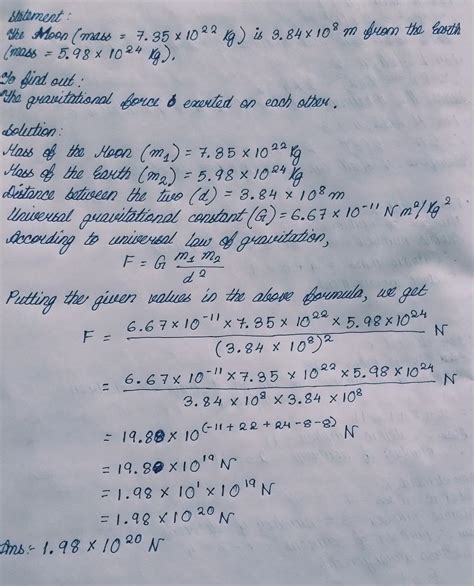 Statement:
The Moon (mass = 7.35 × 10²² kg) is 3.84×10⁸ m from the Earth
(mass = 5.98 × 10²⁴ kg).
To find out:
The gravitational force exerted on each other.
Solution:
Mass of the Moon (m₁) = 7.35×10²² kg
Mass of the Earth (m₂) = 5.98×10²⁴ kg
Distance between the two (d) = 3.84 × 10⁸ m
Universal gravitational constant (G) = 6.67 × 10⁻¹¹ N m²/kg²
According to universal law of gravitation,
F = G m₁ m₂ / d²
Putting the given values in the above formula, we get
F = 6.67×10⁻¹¹ × 7.35 × 10²² × 5.98×10²⁴ / (3.84 × 10⁸)² N
= 6.67×10⁻¹¹ × 7.35 × 10²² × 5.98×10²⁴ / 3.84 × 10⁸ × 3.84 × 10⁸ N
= 19.88 × 10^(-11+22+24-8-8) N
= 19.8 × 10¹⁹ N
= 1.98 × 10¹ × 10¹⁹ N
= 1.98 × 10²⁰ N
Ans:- 1.98 × 10²⁰ N